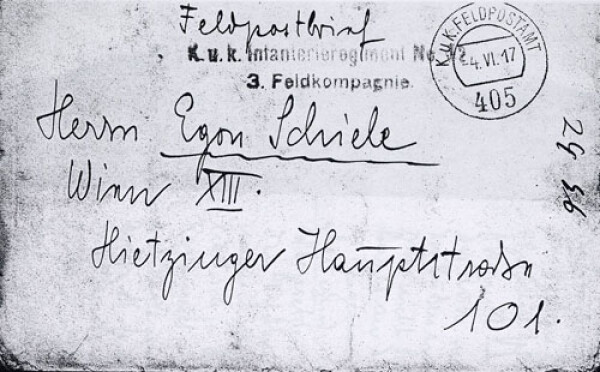 Feldpostbrief
K.u.k. Infanterieregiment No.
3. Feldkompagnie.
K.u.K. FELDPOSTAMT
4. VI. 17
405
Herrn Egon Schiele
Wien XIII.
Hietzinger Hauptstrasse
101.